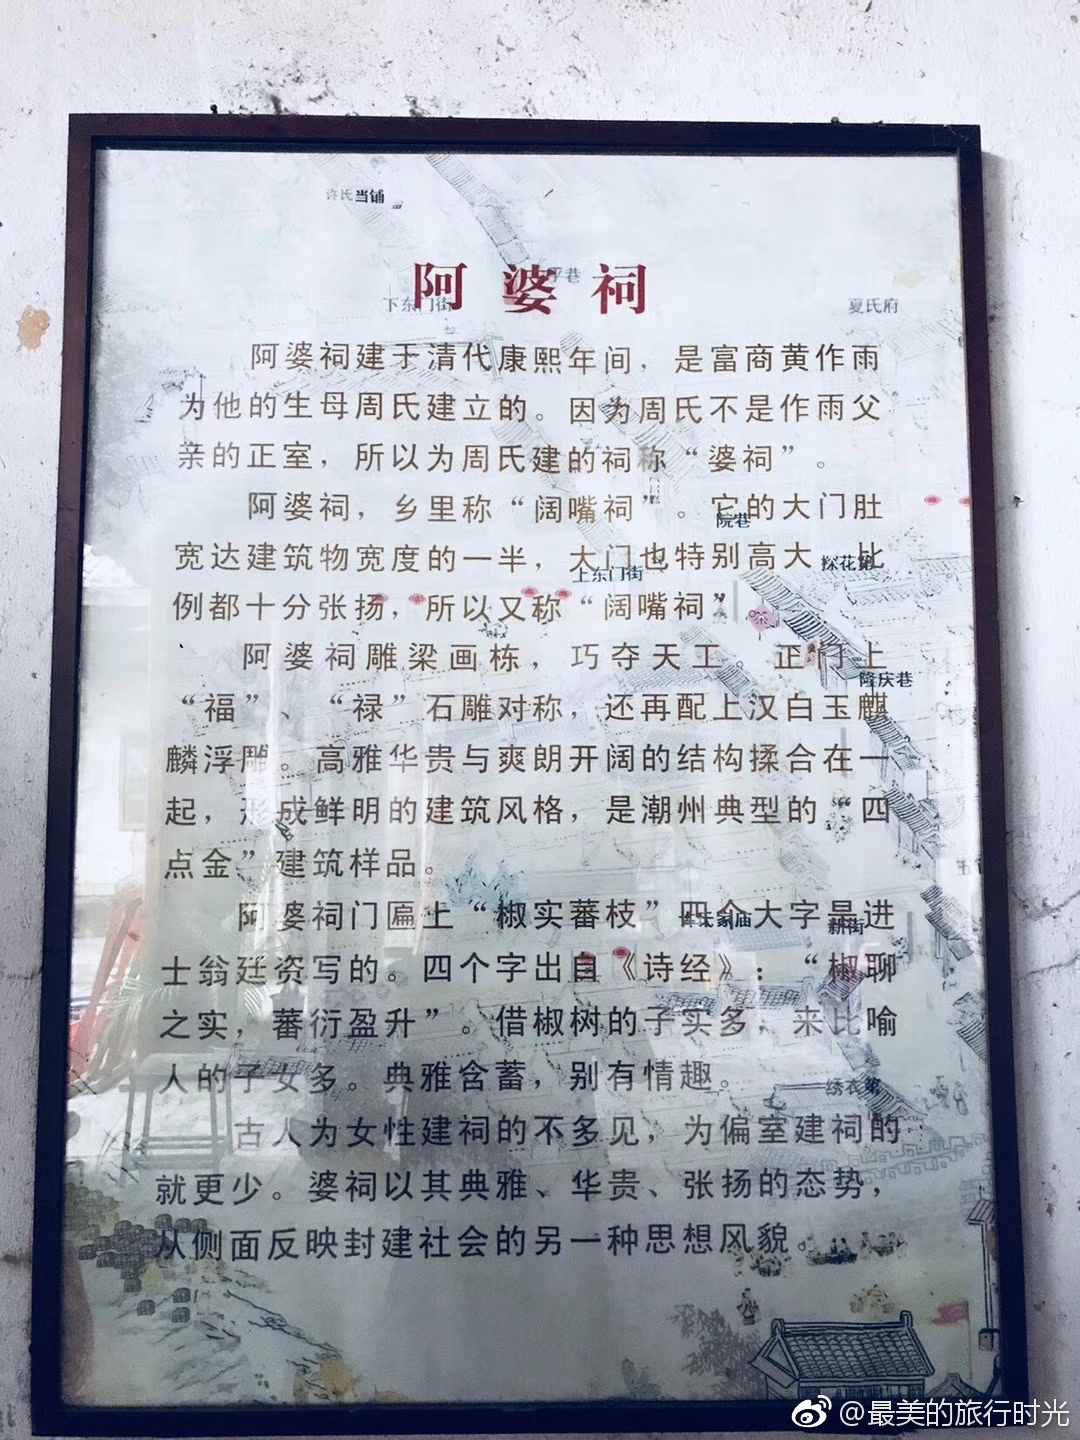 许氏当铺
阿婆祠
下东门街
夏氏府
阿婆祠建于清代康熙年间，是富商黄作雨
为他的生母周氏建立的。因为周氏不是作雨父
亲的正室，所以为周氏建的祠称“婆祠”。
阿婆祠，乡里称“阔嘴祠”。它的大门肚
院巷
宽达建筑物宽度的一半，大门也特别高大，比
探花第
上东门街
例都十分张扬，所以又称“阔嘴祠”
阿婆祠雕梁画栋，巧夺天工。正门上
隆庆巷
“福”、“禄”石雕对称，还再配上汉白玉麒
麟浮雕。高雅华贵与爽朗开阔的结构揉合在一
起，形成鲜明的建筑风格，是潮州典型的“四
点金”建筑样品。
阿婆祠门匾上“椒实蕃枝”四个大字是进
家庙
耕街
士翁廷资写的。四个字出自《诗经》：“椒聊
之实，蕃衍盈升”。借椒树的子实多，来比喻
人的子女多。典雅含蓄，别有情趣。
绣衣第
古人为女性建祠的不多见，为偏室建祠的
就更少。婆祠以其典雅、华贵、张扬的态势，
从侧面反映封建社会的另一种思想风貌。
@最美的旅行时光